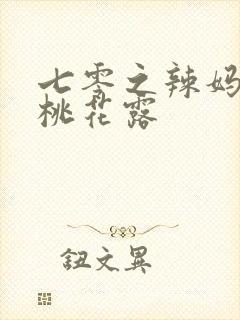 七零之辣妈
桃花露
钮文異